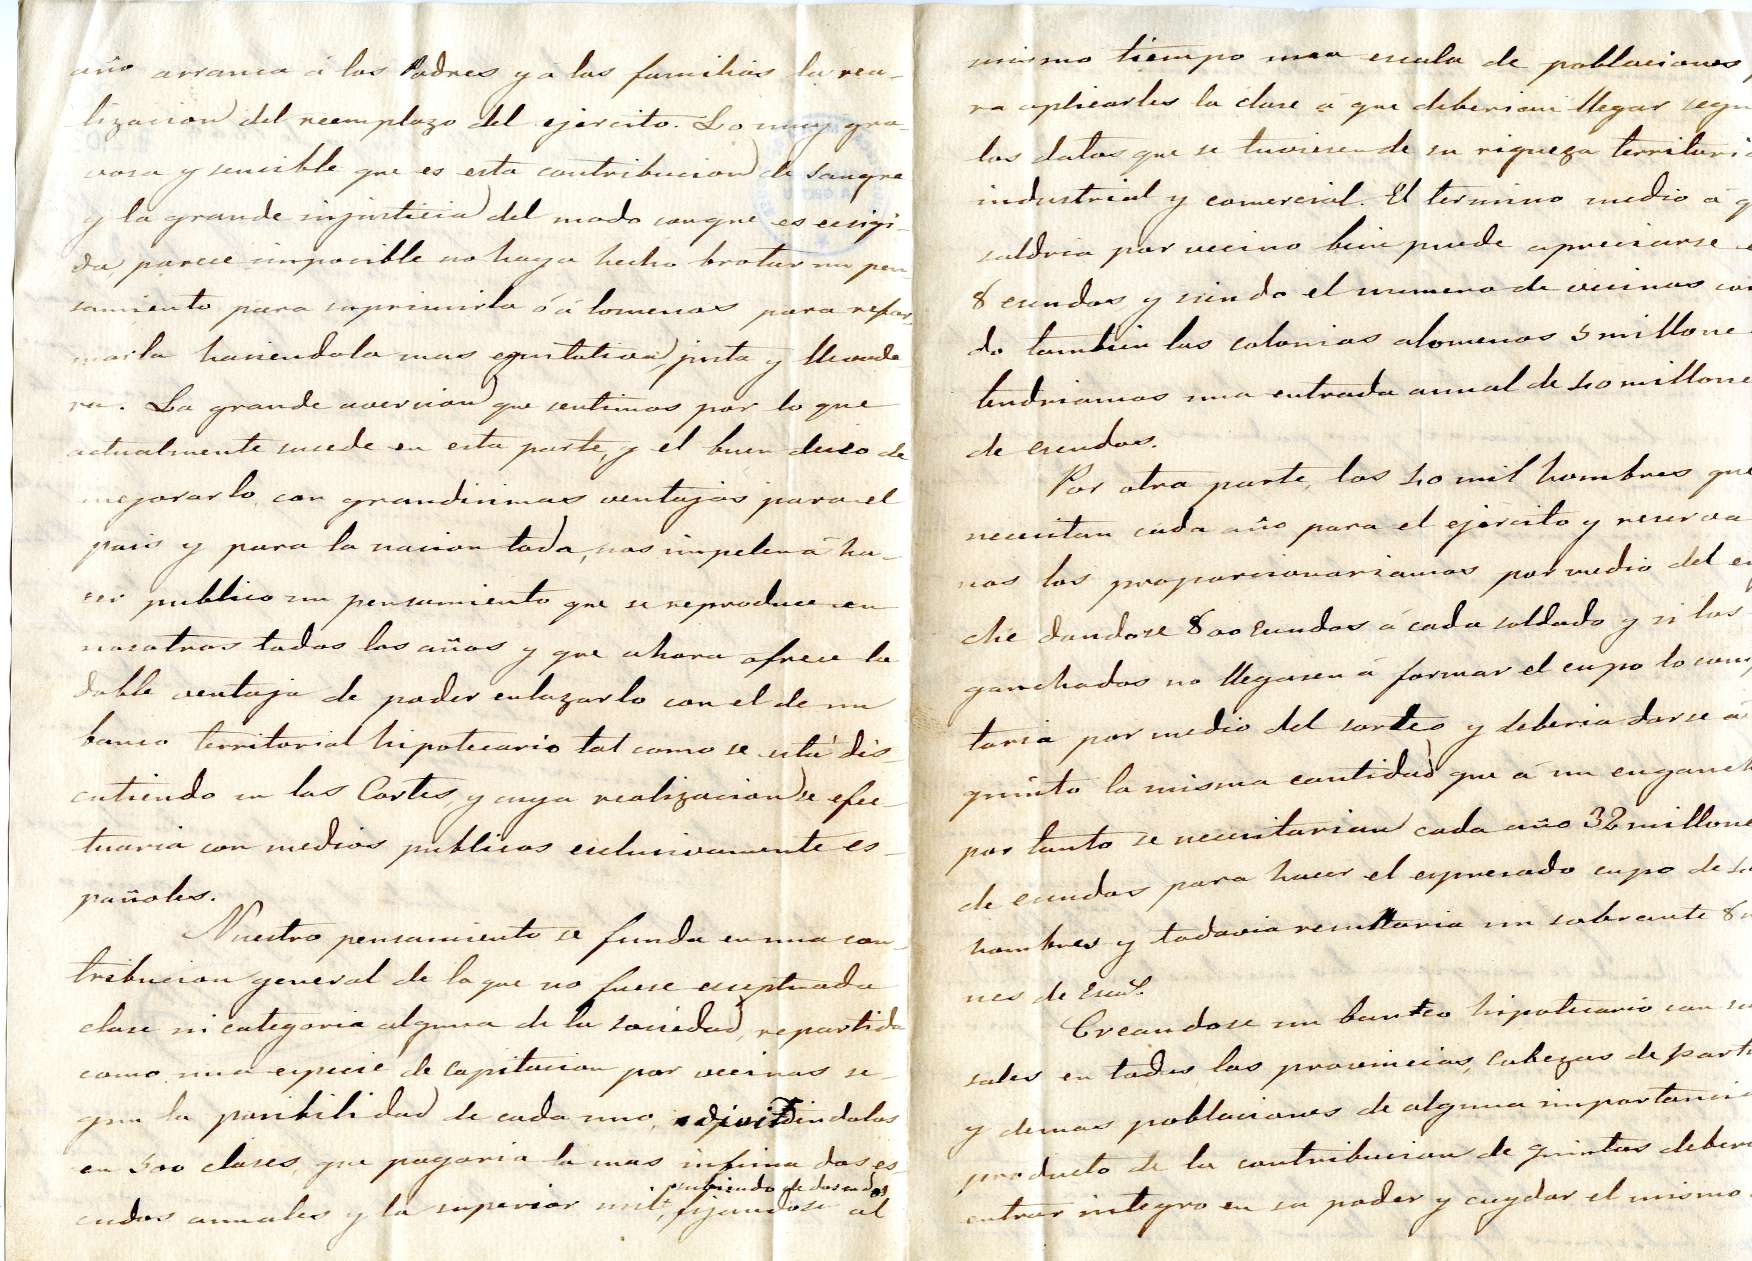 año arranca á los Padres y á las familias la rea-
lizacion del reemplazo del ejército. Lo muy gra-
vosa y sencible que es esta contribucion de sangre
y la grande injusticia del modo conque es ecsigi-
da parece imposible no haya hecho brotar un pen
samiento para suprimirla ó á lomenos para refor-
marla haciendola mas equitativa, justa y llevade-
ra. La grande avercion que sentimos por lo que
actualmente sucede en esta parte, y el buen deseo de
mejorarlo con grandisimas ventajas para el
pais y para la nacion toda, nos impelen á ha-
cer publico un pensamiento que se reproduce en
nosotros todos los años y que ahora ofrece la
doble ventaja de poder enlazarlo con el de un
banco territorial hipotecario tal como se está dis-
cutiendo en las Cortes, y cuya realizacion se efec-
tuaria con medios publicos esclusivamente es-
pañoles.
Nuestro pensamiento se funda en una con-
tribucion general de la que no fuese esceptuada
clase ni categoria alguna de la sociedad, repartida
como una especie de capitacion por vecinos se-
gun la posibilidad de cada uno, dividiendolos
en 500 clases, que pagaria la mas infima dos es-
subiendo de dos en dos
cudos annales y la superior mil, fijandose al
mismo tiempo una escala de poblaciones p
ra aplicarles la clase á que deberian llegar segu
los datos que se tuviesen de su riqueza territoria
industrial y comercial. El termino medio á q
saldria por vecino bien puede apreciarse e
8 escudos y siendo el numero de vecinos con
do tambien las colonias alomenos 5 millone
tendriamos una entrada annal de 40 millone
de escudos.
Por otra parte, los 40 mil hombres que
necesitan cada año para el ejército y reserva
nos los proporcionariamos por medio del en
che dandose 800 escudos á cada soldado y si los
ganchados no llegasen á formar el cupo lo com
taria por medio del sorteo y deberia darse á
quinto la misma cantidad que á un enganch
por tanto se necesitarian cada año 32 millone
de escudos para hacer el espresado cupo de 40
hombres y todavia resultaria un sobrante 8 m
nes de Escs.
Creandose un banco hipotecario con su
sales en todas las provincias, cabezas de parti
y demas poblaciones de alguna importancia
producto de la contribucion de quintas deber
entrar integro en su poder y cuydar el mismo